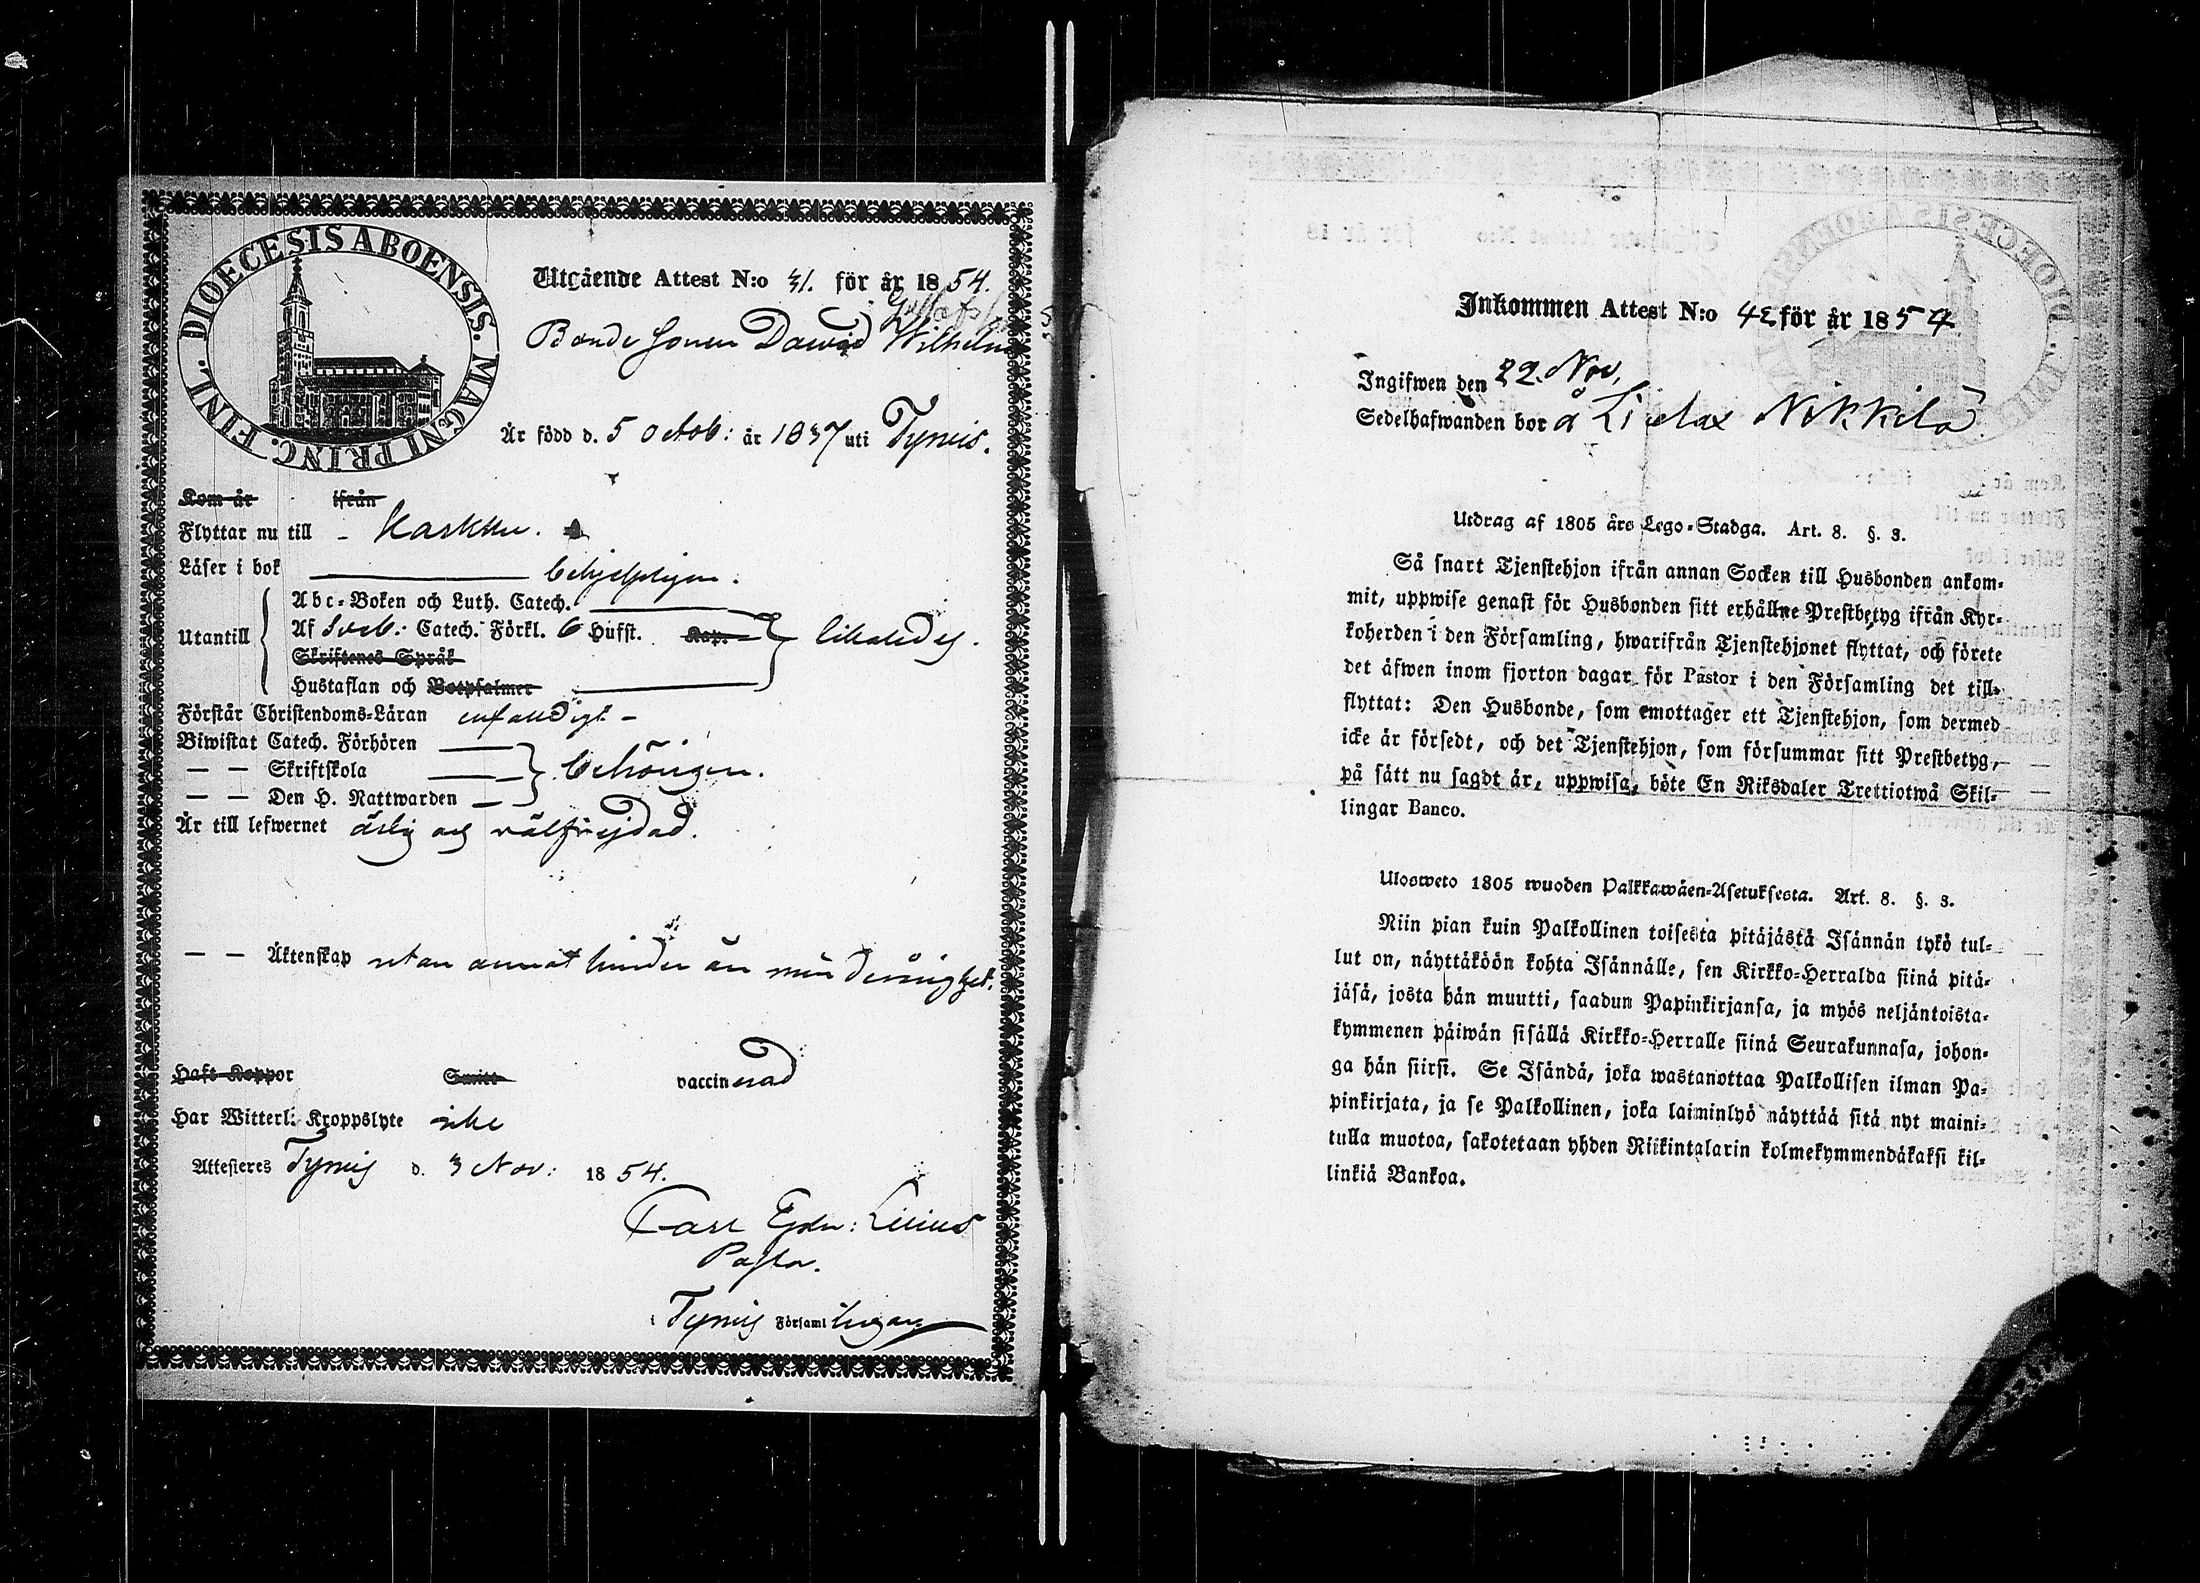 DIOECESIS ABOENSIS. MAGNI PRINC. FINL.
Utgående Attest N:o 31. för år 1854.
Gustafsson
Bonde sonen Dawid Wilhelm
Är född d. 5 octob: år 1837 uti Tyrvis.
Kom år ifrån
Flyttar nu till - Karkku.
Läser i bok behjelpligen.
Abc-Boken och Luth. Catech.
Utantill
Af Sveb: Catech. Förkl. 6 Hufst. Kap. likaledes.
Skriftenes Språk
Hustaflan och Botpsalmer
Förstår Christendoms-Läran enfaldigt -
Biwistat Catech. Förhören
— — Skriftskola behörigen.
— — Den H. Nattwarden
Är till lefwernet ärlig och välfrejdad.
— — Äktenskap utan annat hinder än minderårighet.
Haft Koppor Smitt vaccinerad
Har Witterl: Kroppslyte icke
Attesteres Tyrvis d. 3 Nov: 1854.
Carl Lilius
Pastor.
Tyrvis Församlingar
Inkommen Attest N:o 42 för år 1854
Ingifwen den 22. Nov.
Sedelhafwanden bor å Nikkilä
Utdrag af 1805 års Lego-Stadga. Art. 8. §. 3.
Så snart Tjenstehjon ifrån annan Socken till Husbonden ankom-
mit, uppwise genast för Husbonden sitt erhållne Prestbetyg ifrån Kyr-
koherden i den Församling, hwarifrån Tjenstehjonet flyttat, och förete
det äfwen inom fjorton dagar för Pastor i den Församling det till-
flyttat: Den Husbonde, som emottager ett Tjenstehjon, som dermed
icke är försedt, och det Tjenstehjon, som försummar sitt Prestbetyg,
på sätt nu sagdt är, uppwisa, böte En Riksdaler Trettiotwå Skil-
lingar Banco.
Ulosweto 1805 wuoden Palkkawäen-Asetuksesta. Art. 8. §. 3.
Niin pian kuin Palkollinen toisesta pitäjästä Isännän tykö tul-
lut on, näyttäköön kohta Isännälle, sen Kirkko-Herralda siinä pitä-
jäsä, josta hän muutti, saadun Papinkirjansa, ja myös neljäntoista-
kymmenen päiwän sisällä Kirkko-Herralle siinä Seurakunnasa, johon-
ga hän siirsi. Se Isändä, joka wastanottaa Palkollisen ilman Pa-
pinkirjata, ja se Palkollinen, joka laiminlyö näyttää sitä nyt maini-
tulla muotoa, sakotetaan yhden Riikintalarin kolmekymmendäkaksi kil-
linkiä Bankoa.